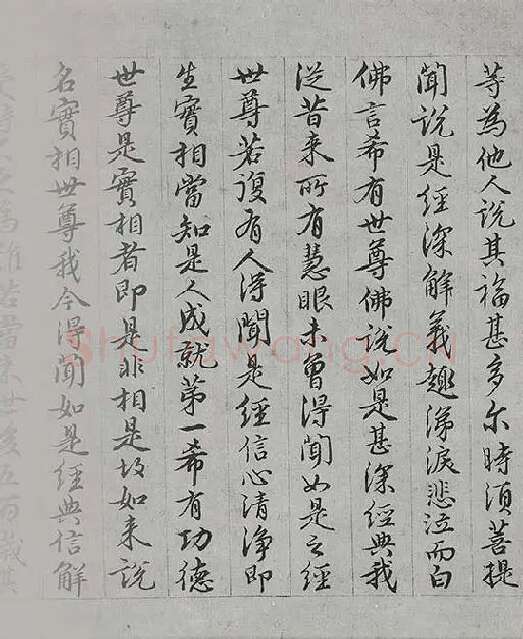 等為他人說其福甚多尒時須菩提
聞說是經深解義趣涕淚悲泣而白
佛言希有世尊佛說如是甚深經典我
從昔来所有慧眼未曾得聞如是之經
世尊若復有人得聞是經信心清淨即
生實相當知是人成就第一希有功德
世尊是實相者即是非相是故如来說
名實相世尊我今得聞如是經典信解
受持不足為難若當来世後五百歲其
Shufawang.cn